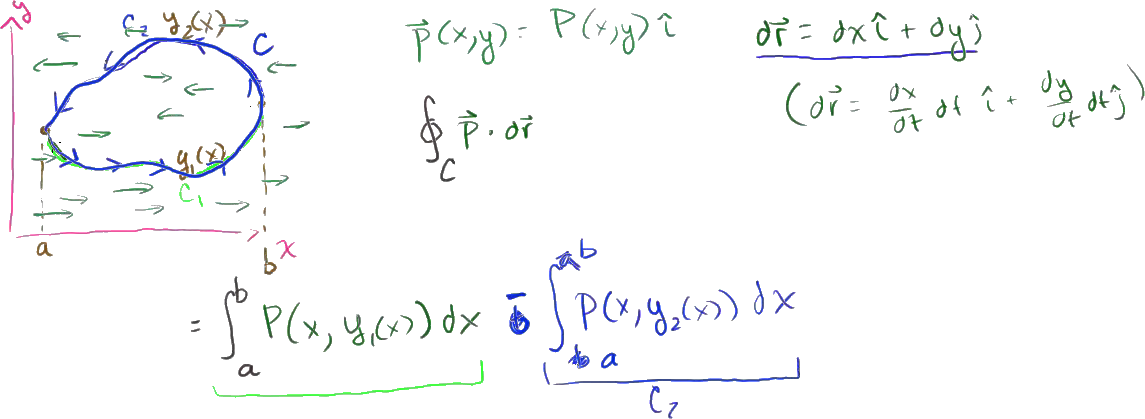 y
C₂ y₂(x)
C
y₁(x)
C₁
a
b
x
p⃗(x,y) = P(x,y) î
∮_C p⃗ · dr⃗
dr⃗ = dx î + dy ĵ
(dr⃗ = dx/dt dt î + dy/dt dt ĵ)
= ∫_a^b P(x, y₁(x)) dx − ∫_a^b P(x, y₂(x)) dx
C₂